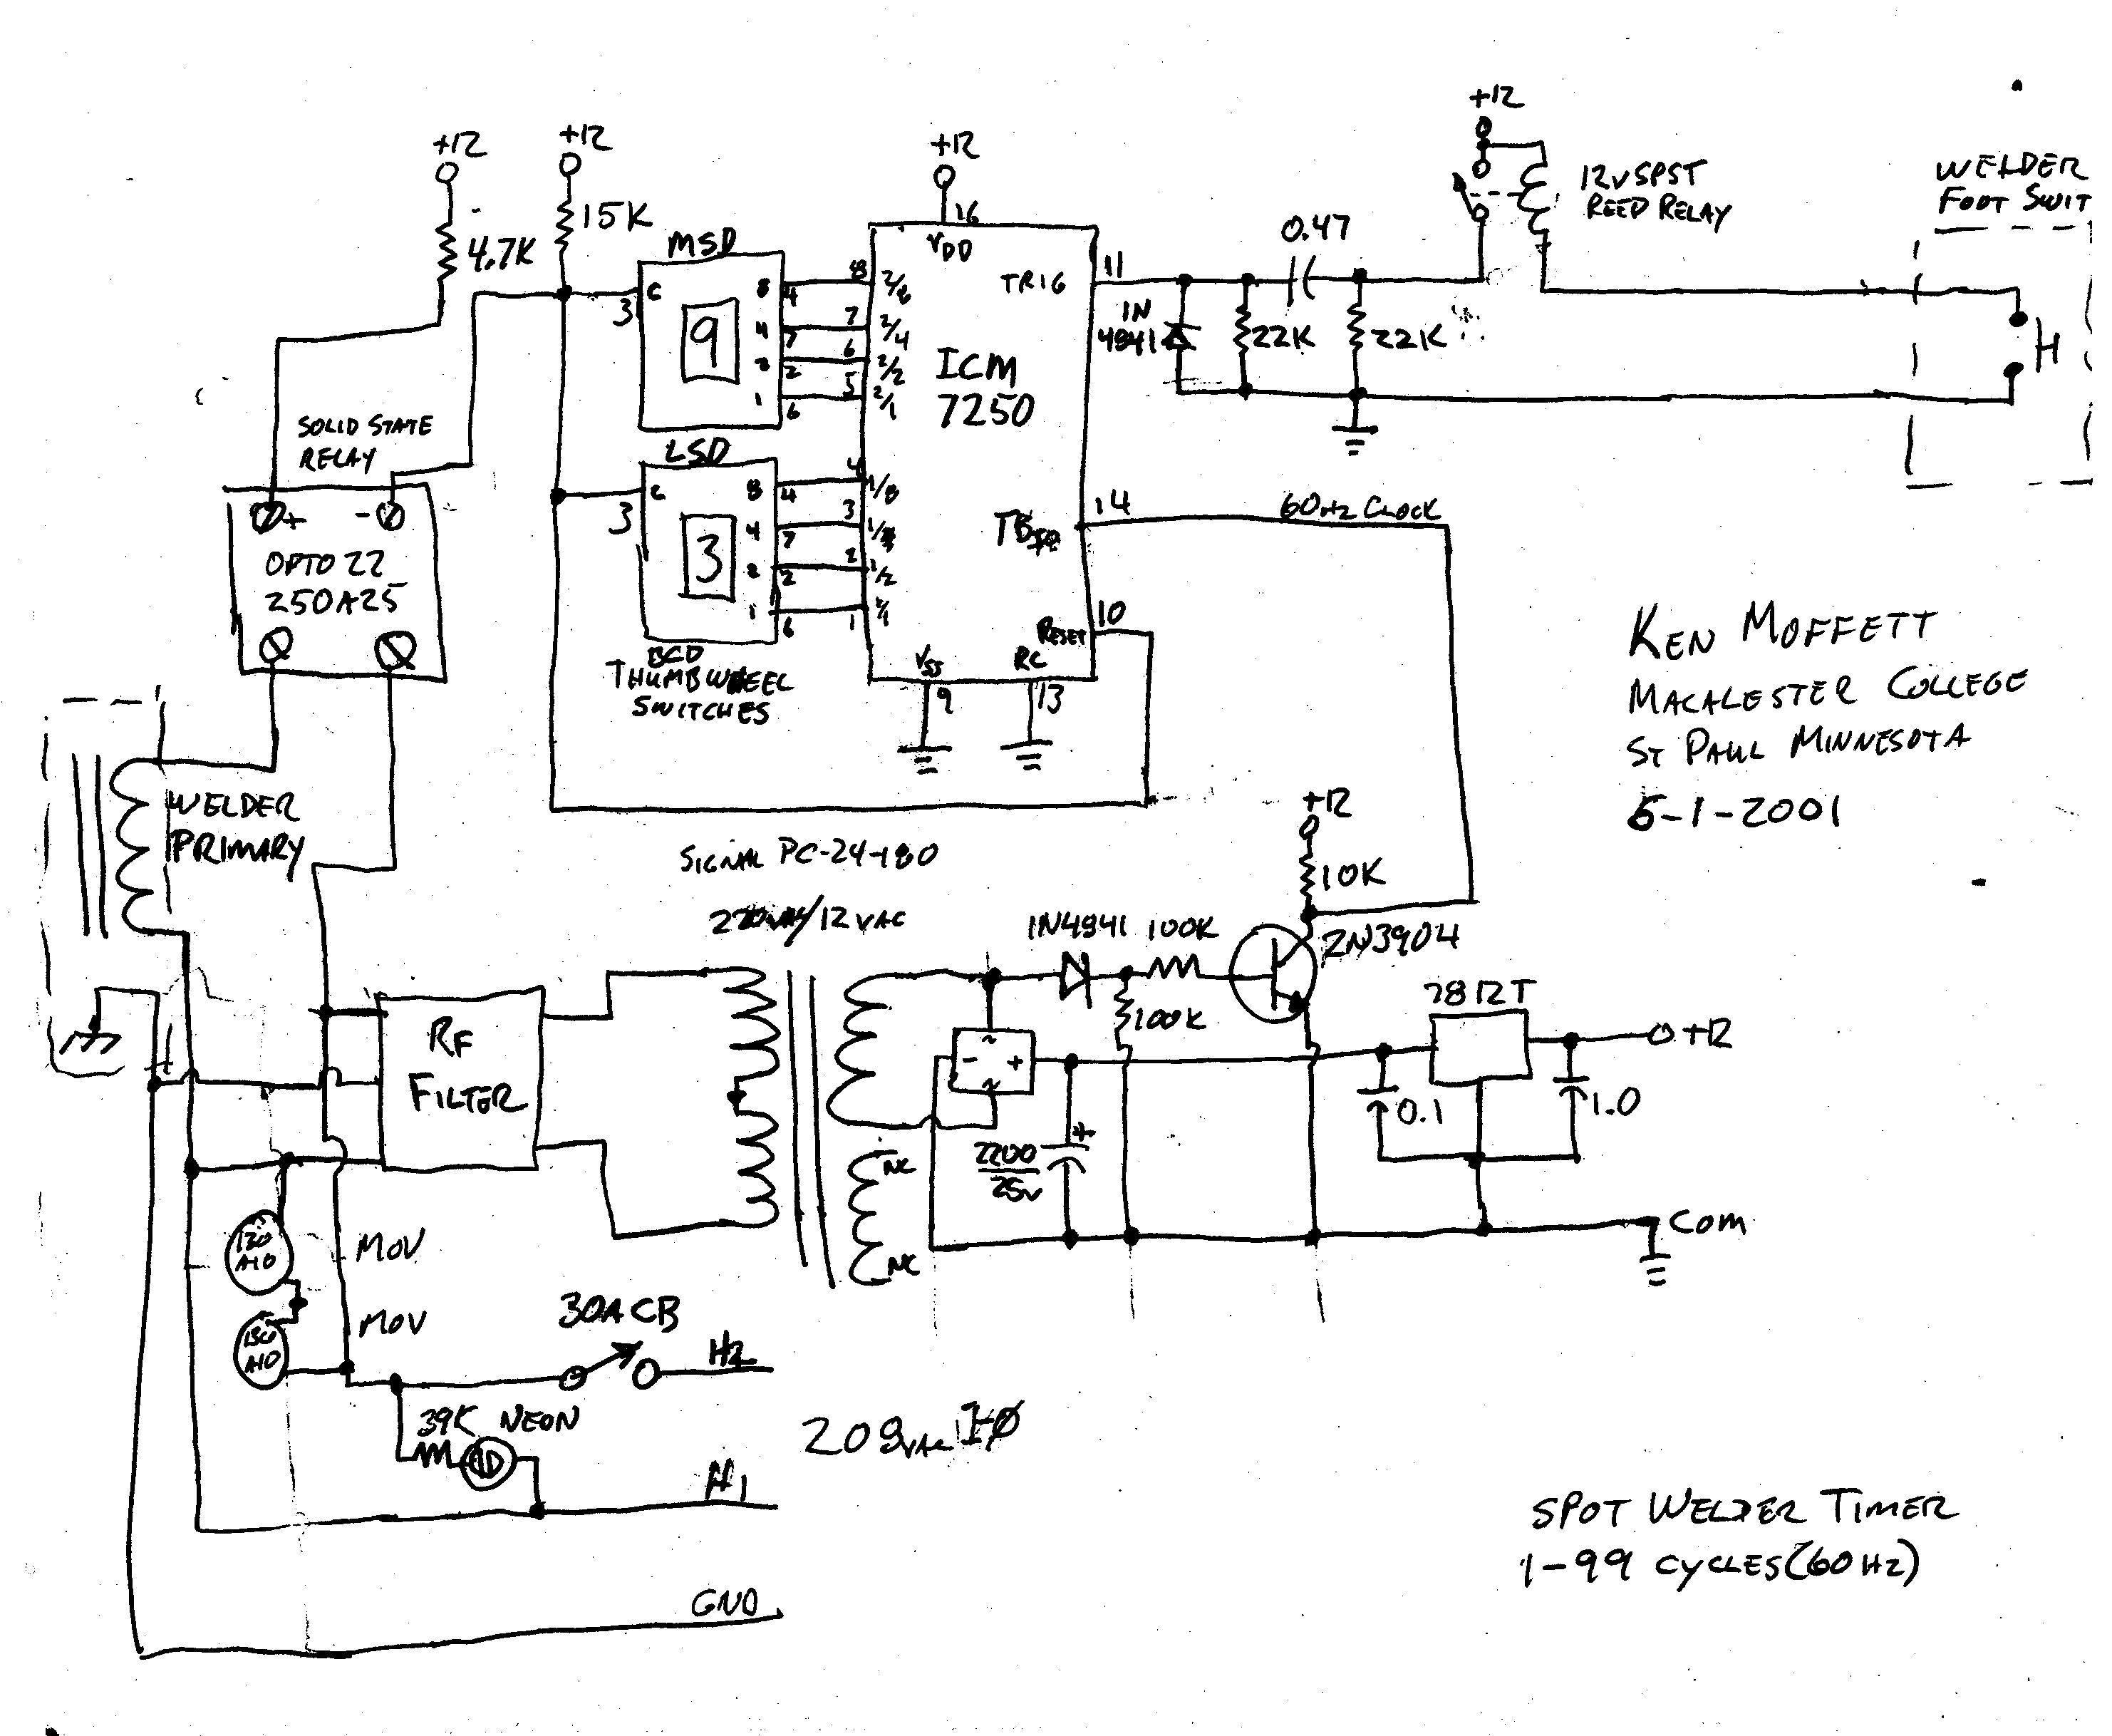 +12
+12
+12
+12
4.7K
15K
MSD
16
VDD
TRIG
11
0.47
12V SPST
REED RELAY
WELDER
FOOT SWIT
C
3
9
8
4
2
1
4
7
2
6
8
7
6
5
2/8
2/4
2/2
2/1
ICM
7250
1N
4941
22K
22K
SOLID STATE
RELAY
LSD
C
3
3
8
4
2
1
4
7
2
6
4
3
2
1
1/8
1/2
14
60HZ CLOCK
+
-
OPTO 22
250A25
BCD
THUMBWHEEL
SWITCHES
VSS
9
RC
13
RESET
10
KEN MOFFETT
MACALESTER COLLEGE
ST PAUL MINNESOTA
5-1-2001
WELDER
PRIMARY
SIGNAL PC-24-180
220VAC/12VAC
+12
10K
1N4941
100K
2N3904
100K
7812T
+12
RF
FILTER
~
-
+
~
2200
25V
+
0.1
1.0
NC
NC
COM
130
A10
MOV
130
A10
MOV
30A CB
H2
39K NEON
208VAC 1-Ø
H1
GND
SPOT WELDER TIMER
1-99 CYCLES (60HZ)